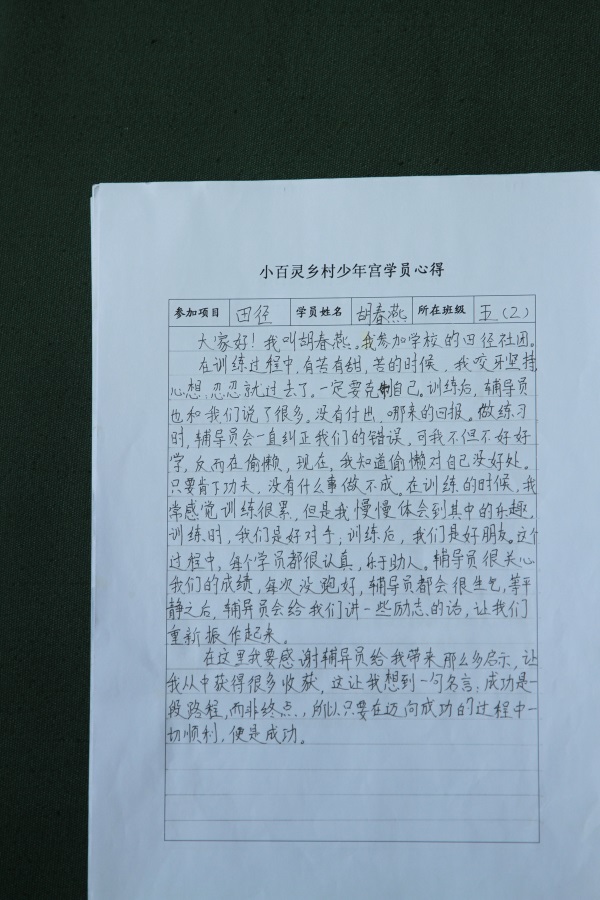 小百灵乡村少年宫学员心得
参加项目 田径 学员姓名 胡春燕 所在班级 五(2)
大家好！我叫胡春燕。我参加学校的田径社团。
在训练过程中,有苦有甜,苦的时候,我咬牙坚持,
心想:忍忍就过去了。一定要克制自己。训练后,辅导员
也和我们说了很多。没有付出,哪来的回报。做练习
时,辅导员会一直纠正我们的错误,可我不但不好好
学,反而在偷懒,现在,我知道偷懒对自己没好处。
只要肯下功夫,没有什么事做不成。在训练的时候,我
常感觉训练很累,但是我慢慢体会到其中的乐趣。
训练时,我们是好对手;训练后,我们是好朋友。这个
过程中,每个学员都很认真,乐于助人。辅导员很关心
我们的成绩,每次没跑好,辅导员都会很生气,等平
静之后,辅导员会给我们讲一些励志的话,让我们
重新振作起来。
在这里我要感谢辅导员给我带来那么多启示,让
我从中获得很多收获,这让我想到一句名言:成功是一
段路程,而非终点,所以只要在迈向成功的过程中一
切顺利,便是成功。